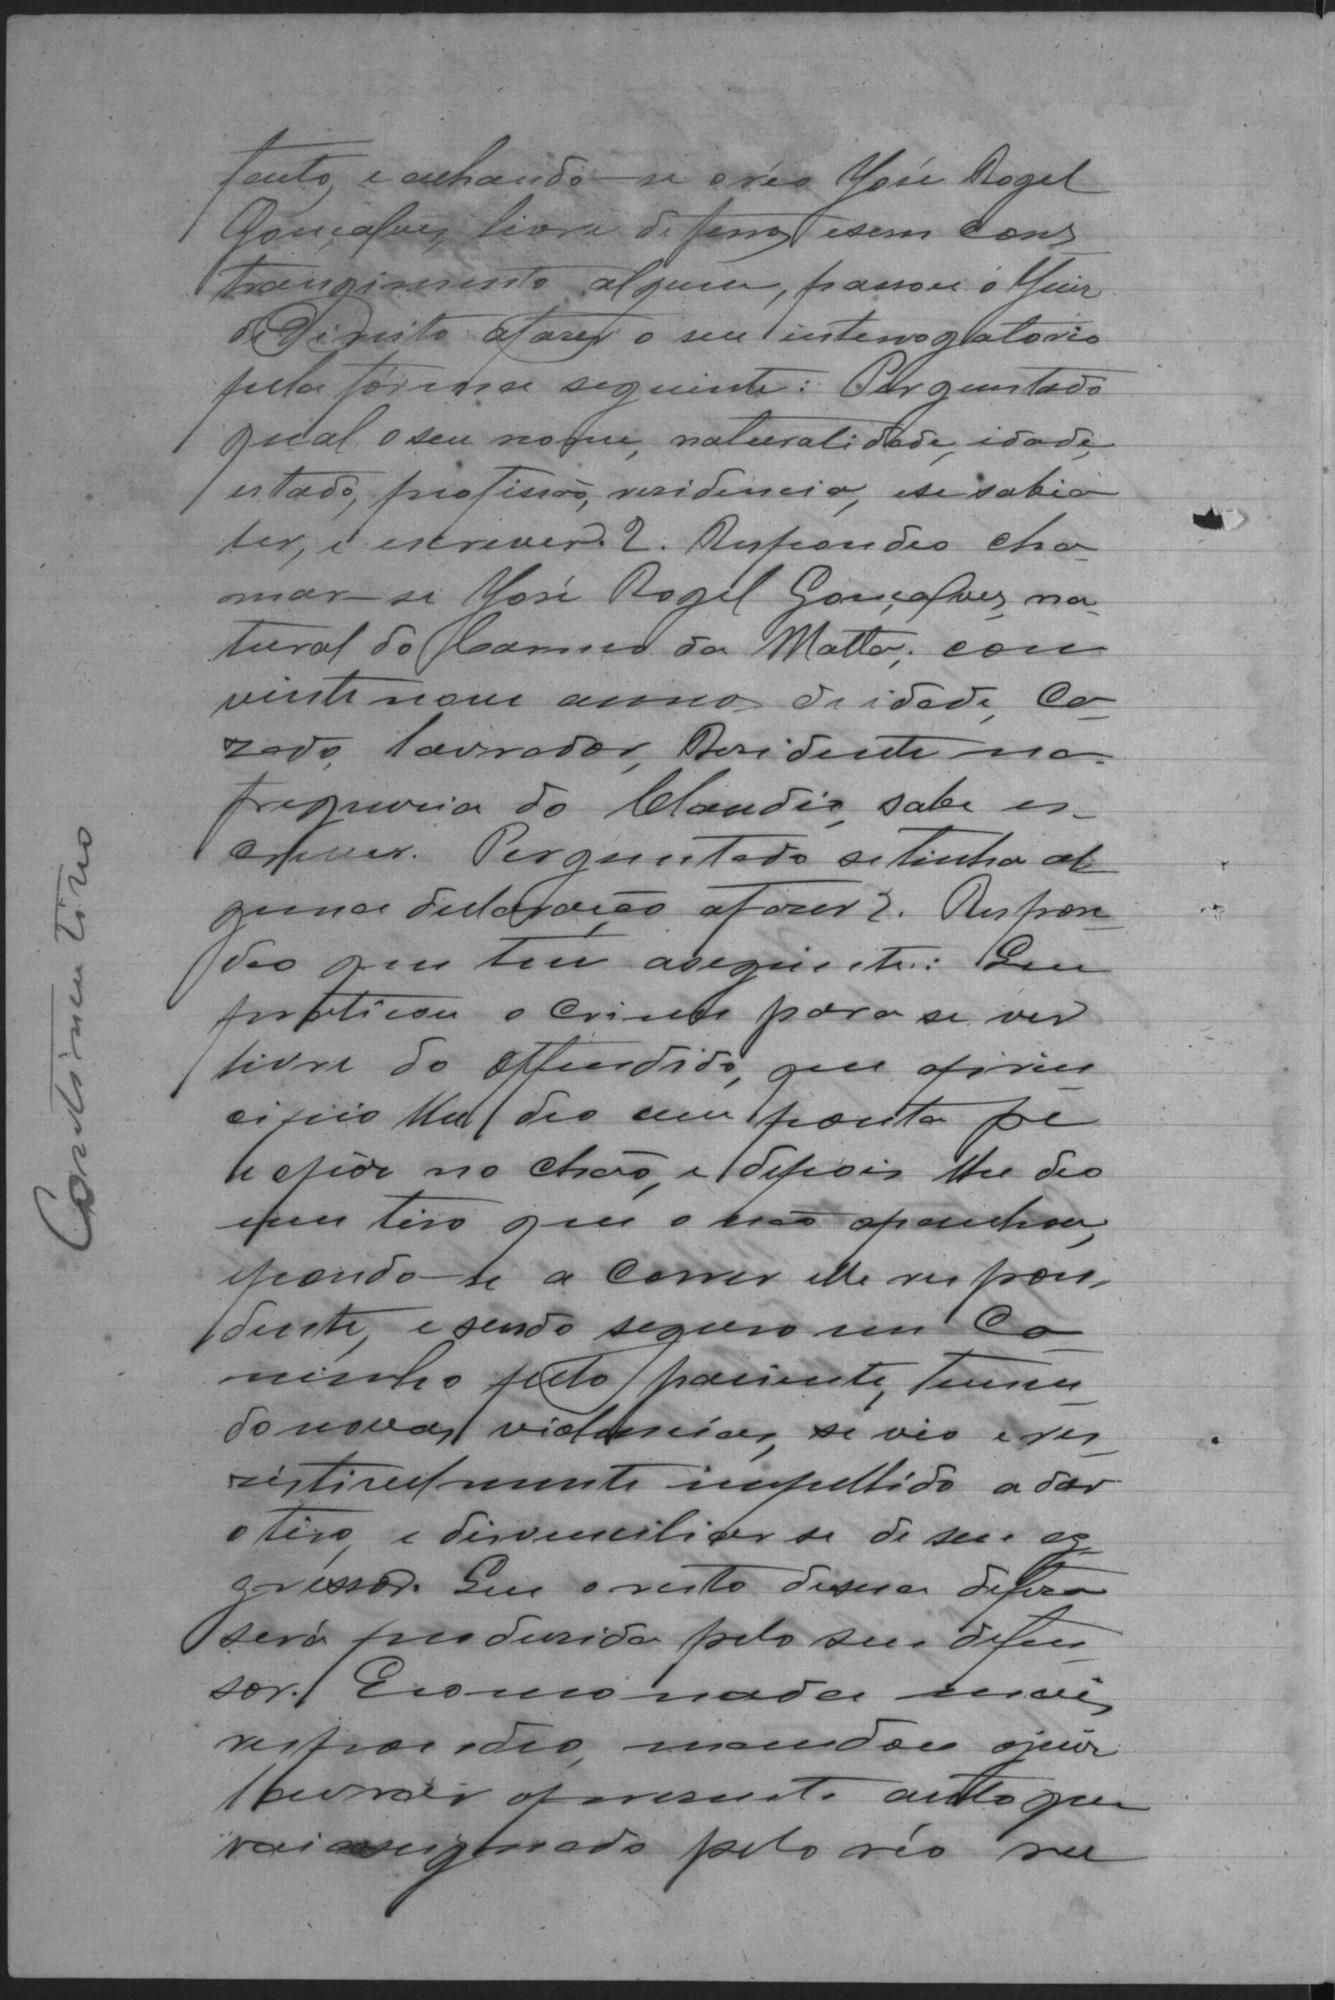 tanto, e achando-se o réo José Rogel
Gonçalves, livre de ferros, e sem cons
trangimento algum, passou o Juiz
de Direito a fazer o seu interrogatorio
pela fórma seguinte: Perguntado
qual o seu nome, naturalidade, idade,
estado, profissão, residencia, e se sabia
ler, e escrever?. Respondeo cha-
mar-se José Rogel Gonçalves, na-
tural do Carmo da Matta; com
vinte nove annos de idade, Ca-
zado, lavrador, Residente na
freguezia do Claudio, sabe es-
crever. Perguntado se tinha al
guma declaração a fazer?. Respon-
deo que tem a seguinte: Que
praticou o crime para se ver
livre do offendido, que a prin-
cipio lhe deo um ponta pé
e o pôz no chão, e depois lhe deo
um tiro que o não apanhou,
e pondo-se a correr elle respon-
dente, e sendo seguro em Ca-
minho pelo paciente, temen-
do novas violencias, se vio erres-
sistivelmente impellido a dar
o tiro, e desvenciliar se de seu ag-
gressor. Que o resto desua defeza
será produzida pelo seu defen-
sor. E como nada mais
respondeo, mandou o juiz
lavrar o presente auto que
vai assignado pelo réo ru
Constinu tiro